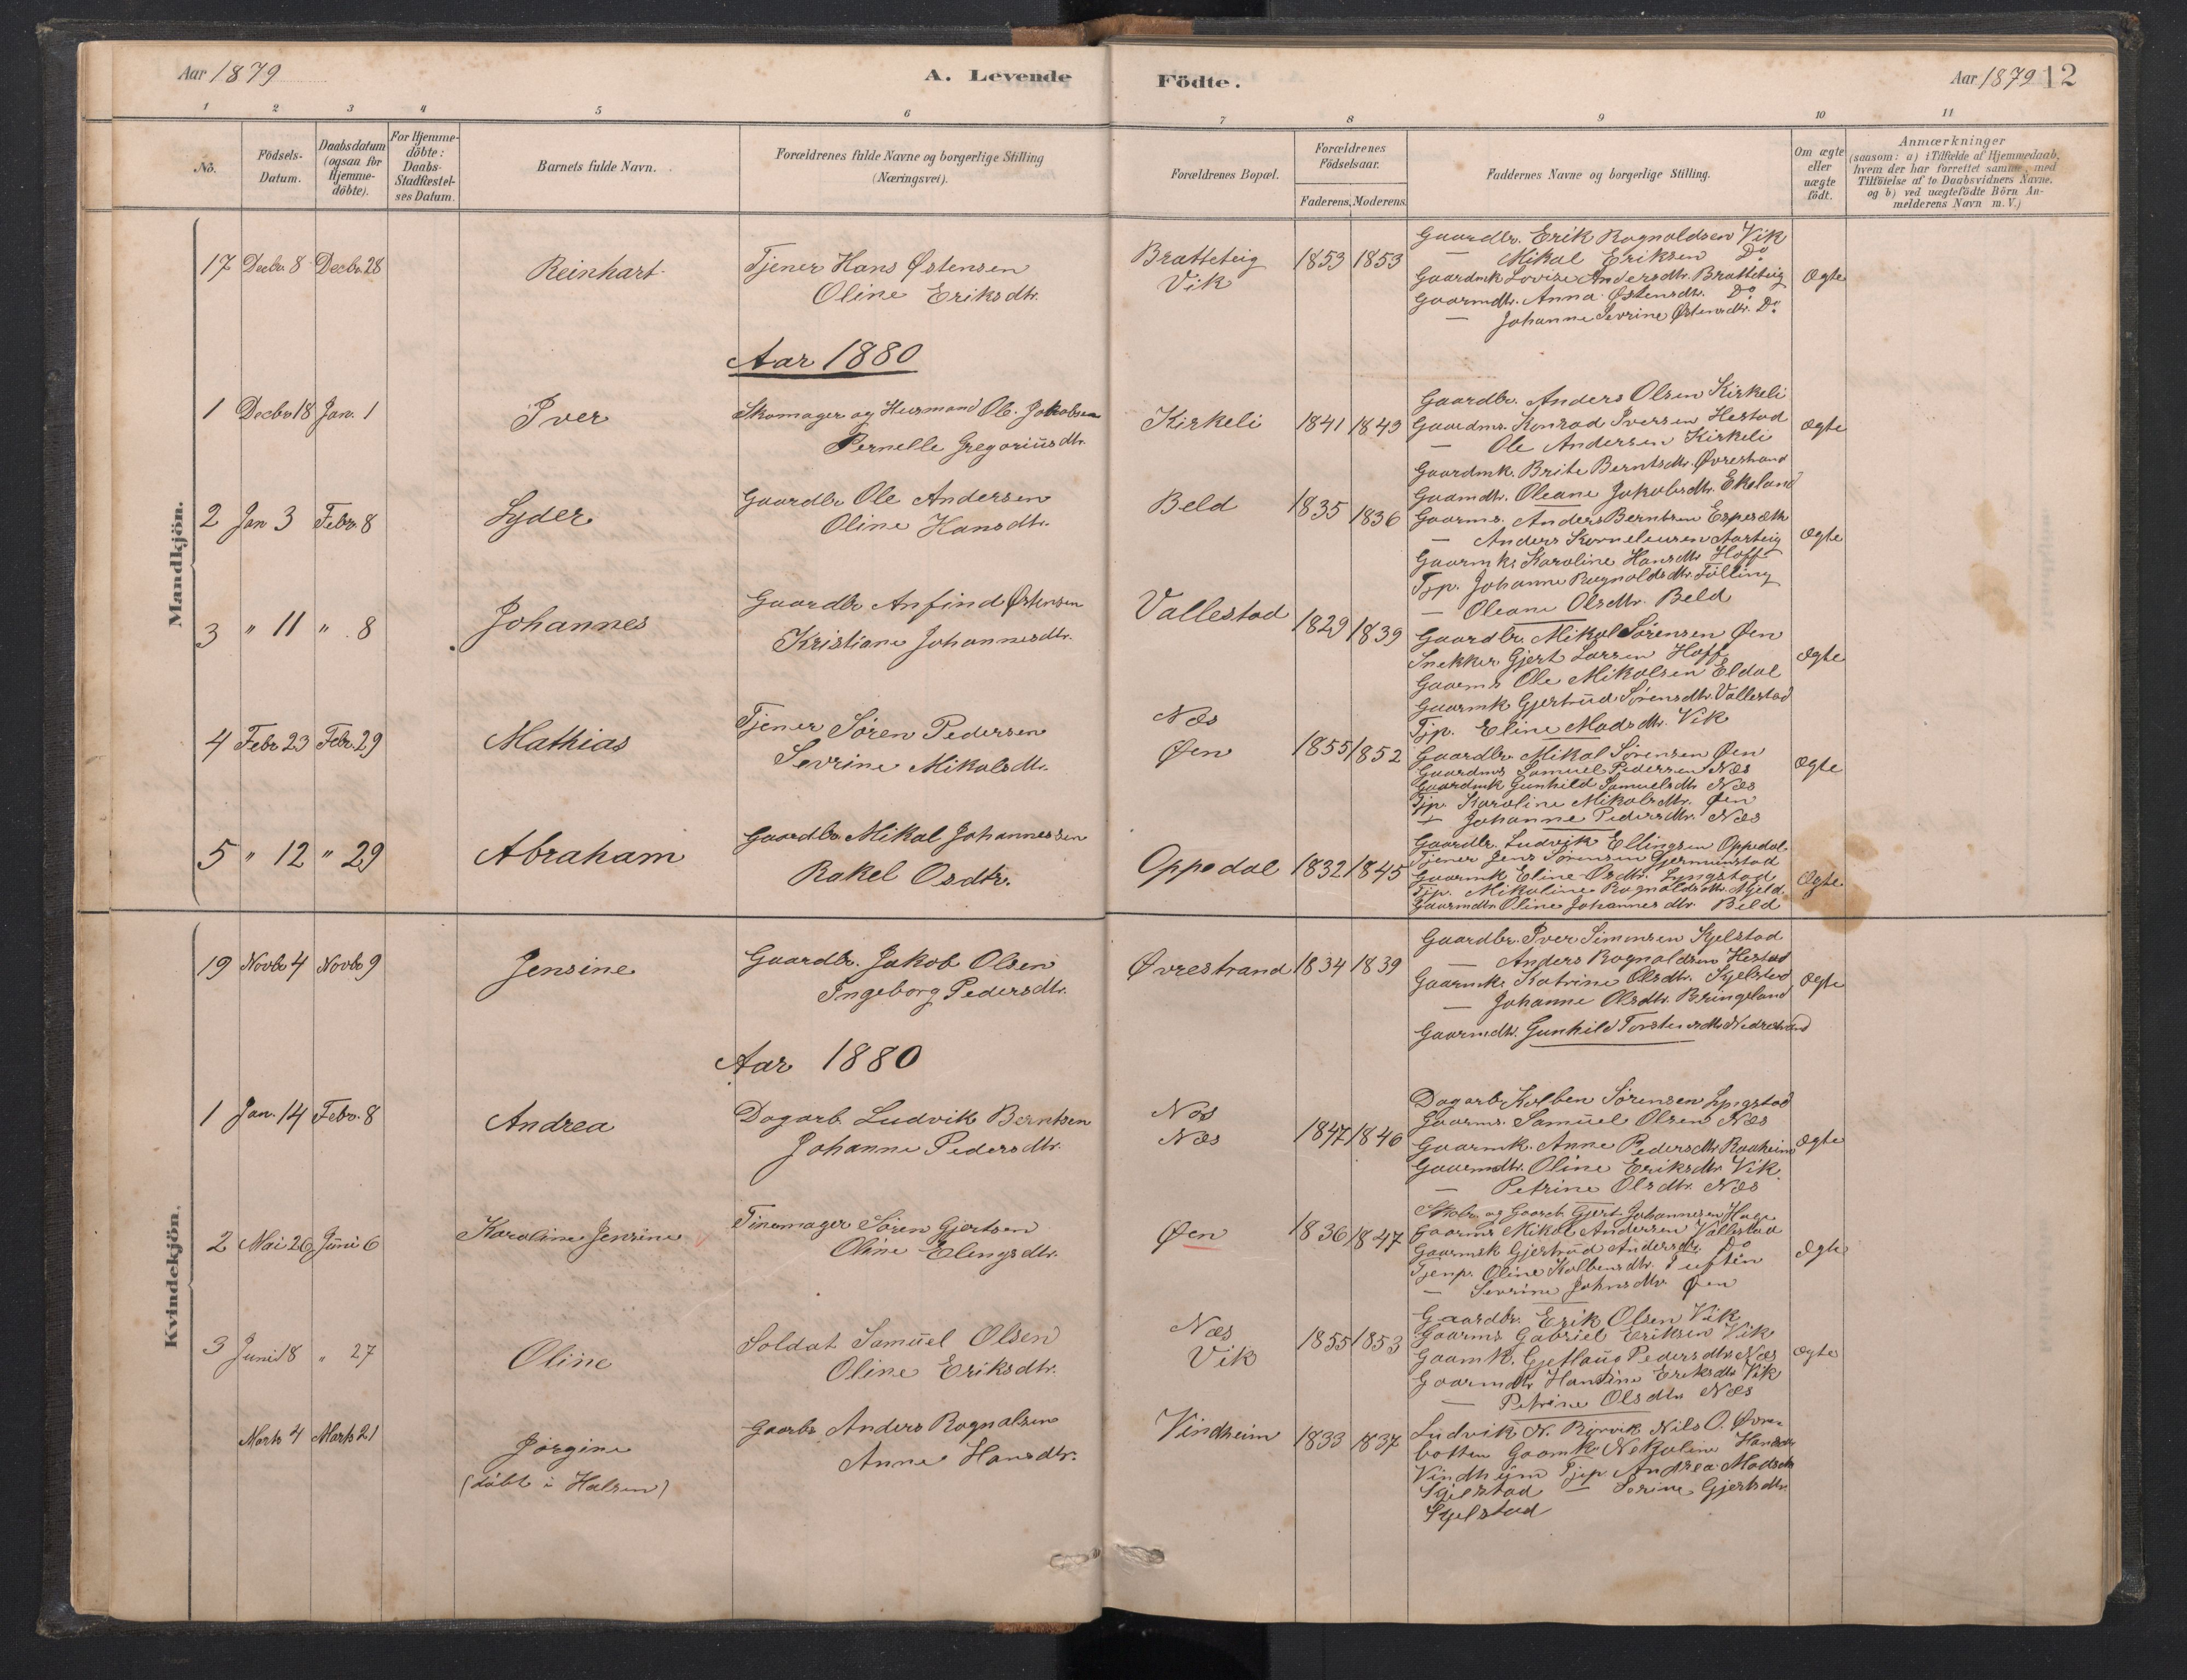 Aar 1879
A. Levende Födte.
Aar 1879 12
1 2 3 4 5 6 7 8 9 10 11
No.
Födsels-Datum.
Daabsdatum (ogsaa for Hjemme-döbte).
For Hjemme-döbte: Daabs-Stadfæstel-ses Datum.
Barnets fulde Navn.
Forældrenes fulde Navne og borgerlige Stilling (Næringsvei).
Forældrenes Bopæl.
Forældrenes Födselsaar.
Faderens. Moderens.
Faddernes Navne og borgerlige Stilling.
Om ægte eller uægte födt.
Anmærkninger
(saasom: a) i Tilfælde af Hjemmedaab,
hvem der har forrettet samme, med
Tilföielse af to Daabsvidners Navne,
og b) ved uægtefödte Börn An-
melderens Navn m. V.)
Mandkjön.
17 Decbr 8 Decbr. 28 Reinhart Tjener Hans Østensen
Oline Eriksdtr.
Bratteteig
Vik
1853 1853
Gaardbr. Erik Ragnoldsen Vik
— Mikal Eriksen Do
Gaardmk Lovise Andersdtr. Bratteteig
Gaarmdtr. Anna Østensdtr. Do
— Johanne Sevrine Østensdtr. Do
Ægte
Aar 1880
1 Decbr 18 Jan. 1 Iver Skomager og Husmand Ol. Jakobsen
Pernelle Gregoriusdtr.
Kirkeli 1841 1843
Gaardbr. Anders Olsen Kirkeli
Gaardms. Konrad Iversen Hestad
— Ole Andersen Kirkeli
Gaardmk. Brite Berntsdtr. Øvrestrand
Gaamdtr. Oleane Jakobsdtr. Ekeland
Ægte
2 Jan 3 Febr. 8 Lyder Gaardbr Ole Andersen
Oline Hansdtr.
Beld 1835 1836
Gaarms. Anders Berntsen Espeseth
— Anders Korneleusen Aarteig
Gaarmk Karoline Hansdtr Hoff
Tjp. Johanne Ragnoldsdtr. Tölling
— Oleane Olsdtr. Beld
Ægte
3 " 11 " 8 Johannes Gaardbr Anfind Østensen
Kristiane Johannesdtr.
Vallestad 1829 1839
Gaardbr. Mikal Sörensen Øen
Snekker Gjert Larsen Hoff
Gaarms Ole Mikalsen Eldal
Gaarmk Gjertrud Sörensdtr. Vallestad
Tjp. Eline Madsdtr. Vik
Ægte
4 Febr 23 Febr. 29 Mathias Tjener Sören Pedersen
Sevrine Mikalsdtr.
Næs
Øen
1855 1852
Gaardbr. Mikal Sörensen Øen
Gaardms Samuel Pedersen Næs
Gaardmk Gunhild Samuelsdtr Næs
Tjp. Karoline Mikalsdtr. Øen
— Johanne Pedersdtr. Næs
Ægte
5 " 12 " 29 Abraham Gaardbr Mikal Johannessen
Rakel Osdtr.
Oppedal 1832 1845
Gaardbr. Ludvik Ellingsen Oppedal
Tjener Jens Sörensen Gjermunstad
Gaarmk Eline Osdtr. Lyngstad
Tjp. Mikaline Ragnoldsdtr. Mjeld
Gaarmdtr. Oline Johannesdtr. Beld
Ægte
Kvindekjön.
19 Novbr 4 Novbr 9 Jensine Gaardbr. Jakob Olsen
Ingeborg Pedersdtr.
Øvrestrand 1834 1839
Gaardbr. Iver Simonsen Kjelstad
— Anders Ragnoldsen Hestad
Gaarmk. Katrine Olsdtr. Kjelstad
— Johanne Olsdtr. Bringeland
Gaarmdtr. Gunhild Torstensdtr Nedrestrand
Ægte
Aar 1880
1 Jan. 14 Febr. 8 Andrea Dagarb. Ludvik Berntsen
Johanne Pedersdtr.
Næs
Næs
1847 1846
Dagarb. Kolben Sörensen Lyngstad
Gaarms. Samuel Olsen Næs
Gaarmk. Anne Pedersdtr Raaheim
Gaarmdtr. Oline Eriksdtr. Vik
— Petrine Olsdtr. Næs
Ægte
2 Mai 26 Juni 6 Karoline Jensine Tinemager Sören Gjertsen
Oline Elingsdtr.
Øen 1836 1847
Gjert Johannesen
Gaarms Mikal Andersen Vallestad
Gaarmk Gjertrud Andersdtr Do
Tjenp. Oline Kolbensdtr. Tuften
— Sevrine Johnsdtr. Øen
Ægte
3 Juni 18 " 27 Oline Soldat Samuel Olsen
Oline Eriksdtr.
Næs
Vik
1855 1853
Gaardbr. Erik Olsen Vik
Gaarms Gabriel Eriksen Vik
Gaamk. Gjetlaug Pedersdtr. Næs
Gaarmdtr Hansine Eriksdtr Vik
— Petrine Olsdtr Næs
Ægte
Marts 4 Marts 21 Jørgine
(döbt i Halsen)
Gaarbr Anders Ragnalsen
Anne Hansdtr.
Vindheim 1833 1837
Ludvik N. Rörvik Nils O. Øvre-
botten Gaamk Nekoline Hansdtr
Vindheim Tjp. Andrea Madsdtr
Kjelstad — Serine Gjertsdtr
Kjelstad